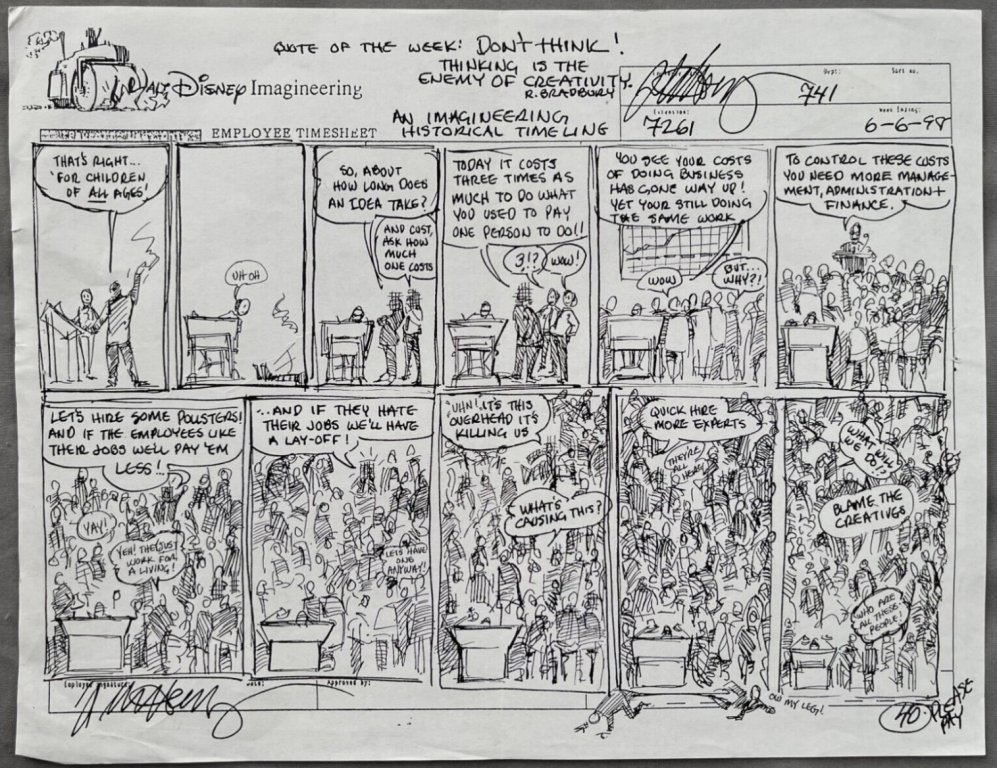 QUOTE OF THE WEEK: DON'T THINK!
THINKING IS THE
ENEMY OF CREATIVITY.
R. BRADBURY
WALT DISNEY Imagineering
Dept:
741
AN IMAGINEERING
HISTORICAL TIMELINE
EMPLOYEE TIMESHEET
Extension:
7261
Week Ending:
6-6-98
THAT'S RIGHT...
"FOR CHILDREN
OF ALL AGES!
UH OH
SO, ABOUT
HOW LONG DOES
AN IDEA TAKE?
AND COST,
ASK HOW
MUCH
ONE COSTS
TODAY IT COSTS
THREE TIMES AS
MUCH TO DO WHAT
YOU USED TO PAY
ONE PERSON TO DO!!
3!?
WOW!
YOU SEE YOUR COSTS
OF DOING BUSINESS
HAS GONE WAY UP!
YET YOUR STILL DOING
THE SAME WORK
WOW
BUT...
WHY?!
TO CONTROL THESE COSTS
YOU NEED MORE MANAGE-
MENT, ADMINISTRATION +
FINANCE.
LET'S HIRE SOME POLLSTERS!
AND IF THE EMPLOYEES LIKE
THEIR JOBS WE'LL PAY 'EM
LESS!
YAY!
YEH! THEY JUST
WORK FOR
A LIVING!
...AND IF THEY HATE
THEIR JOBS WE'LL HAVE
A LAY-OFF!
LETS HAVE
ONE
ANYWAY!!
UHN! IT'S THIS
OVERHEAD IT'S
KILLING US
WHAT'S
CAUSING THIS?
QUICK HIRE
MORE EXPERTS
THEY'RE
ALL
HERE!
WHAT
WILL
WE DO!
BLAME THE
CREATIVES
WHO ARE
ALL THESE
PEOPLE!
Employee Signature:
Date:
Approved by:
OW MY LEG!
40
PLEASE
PAY